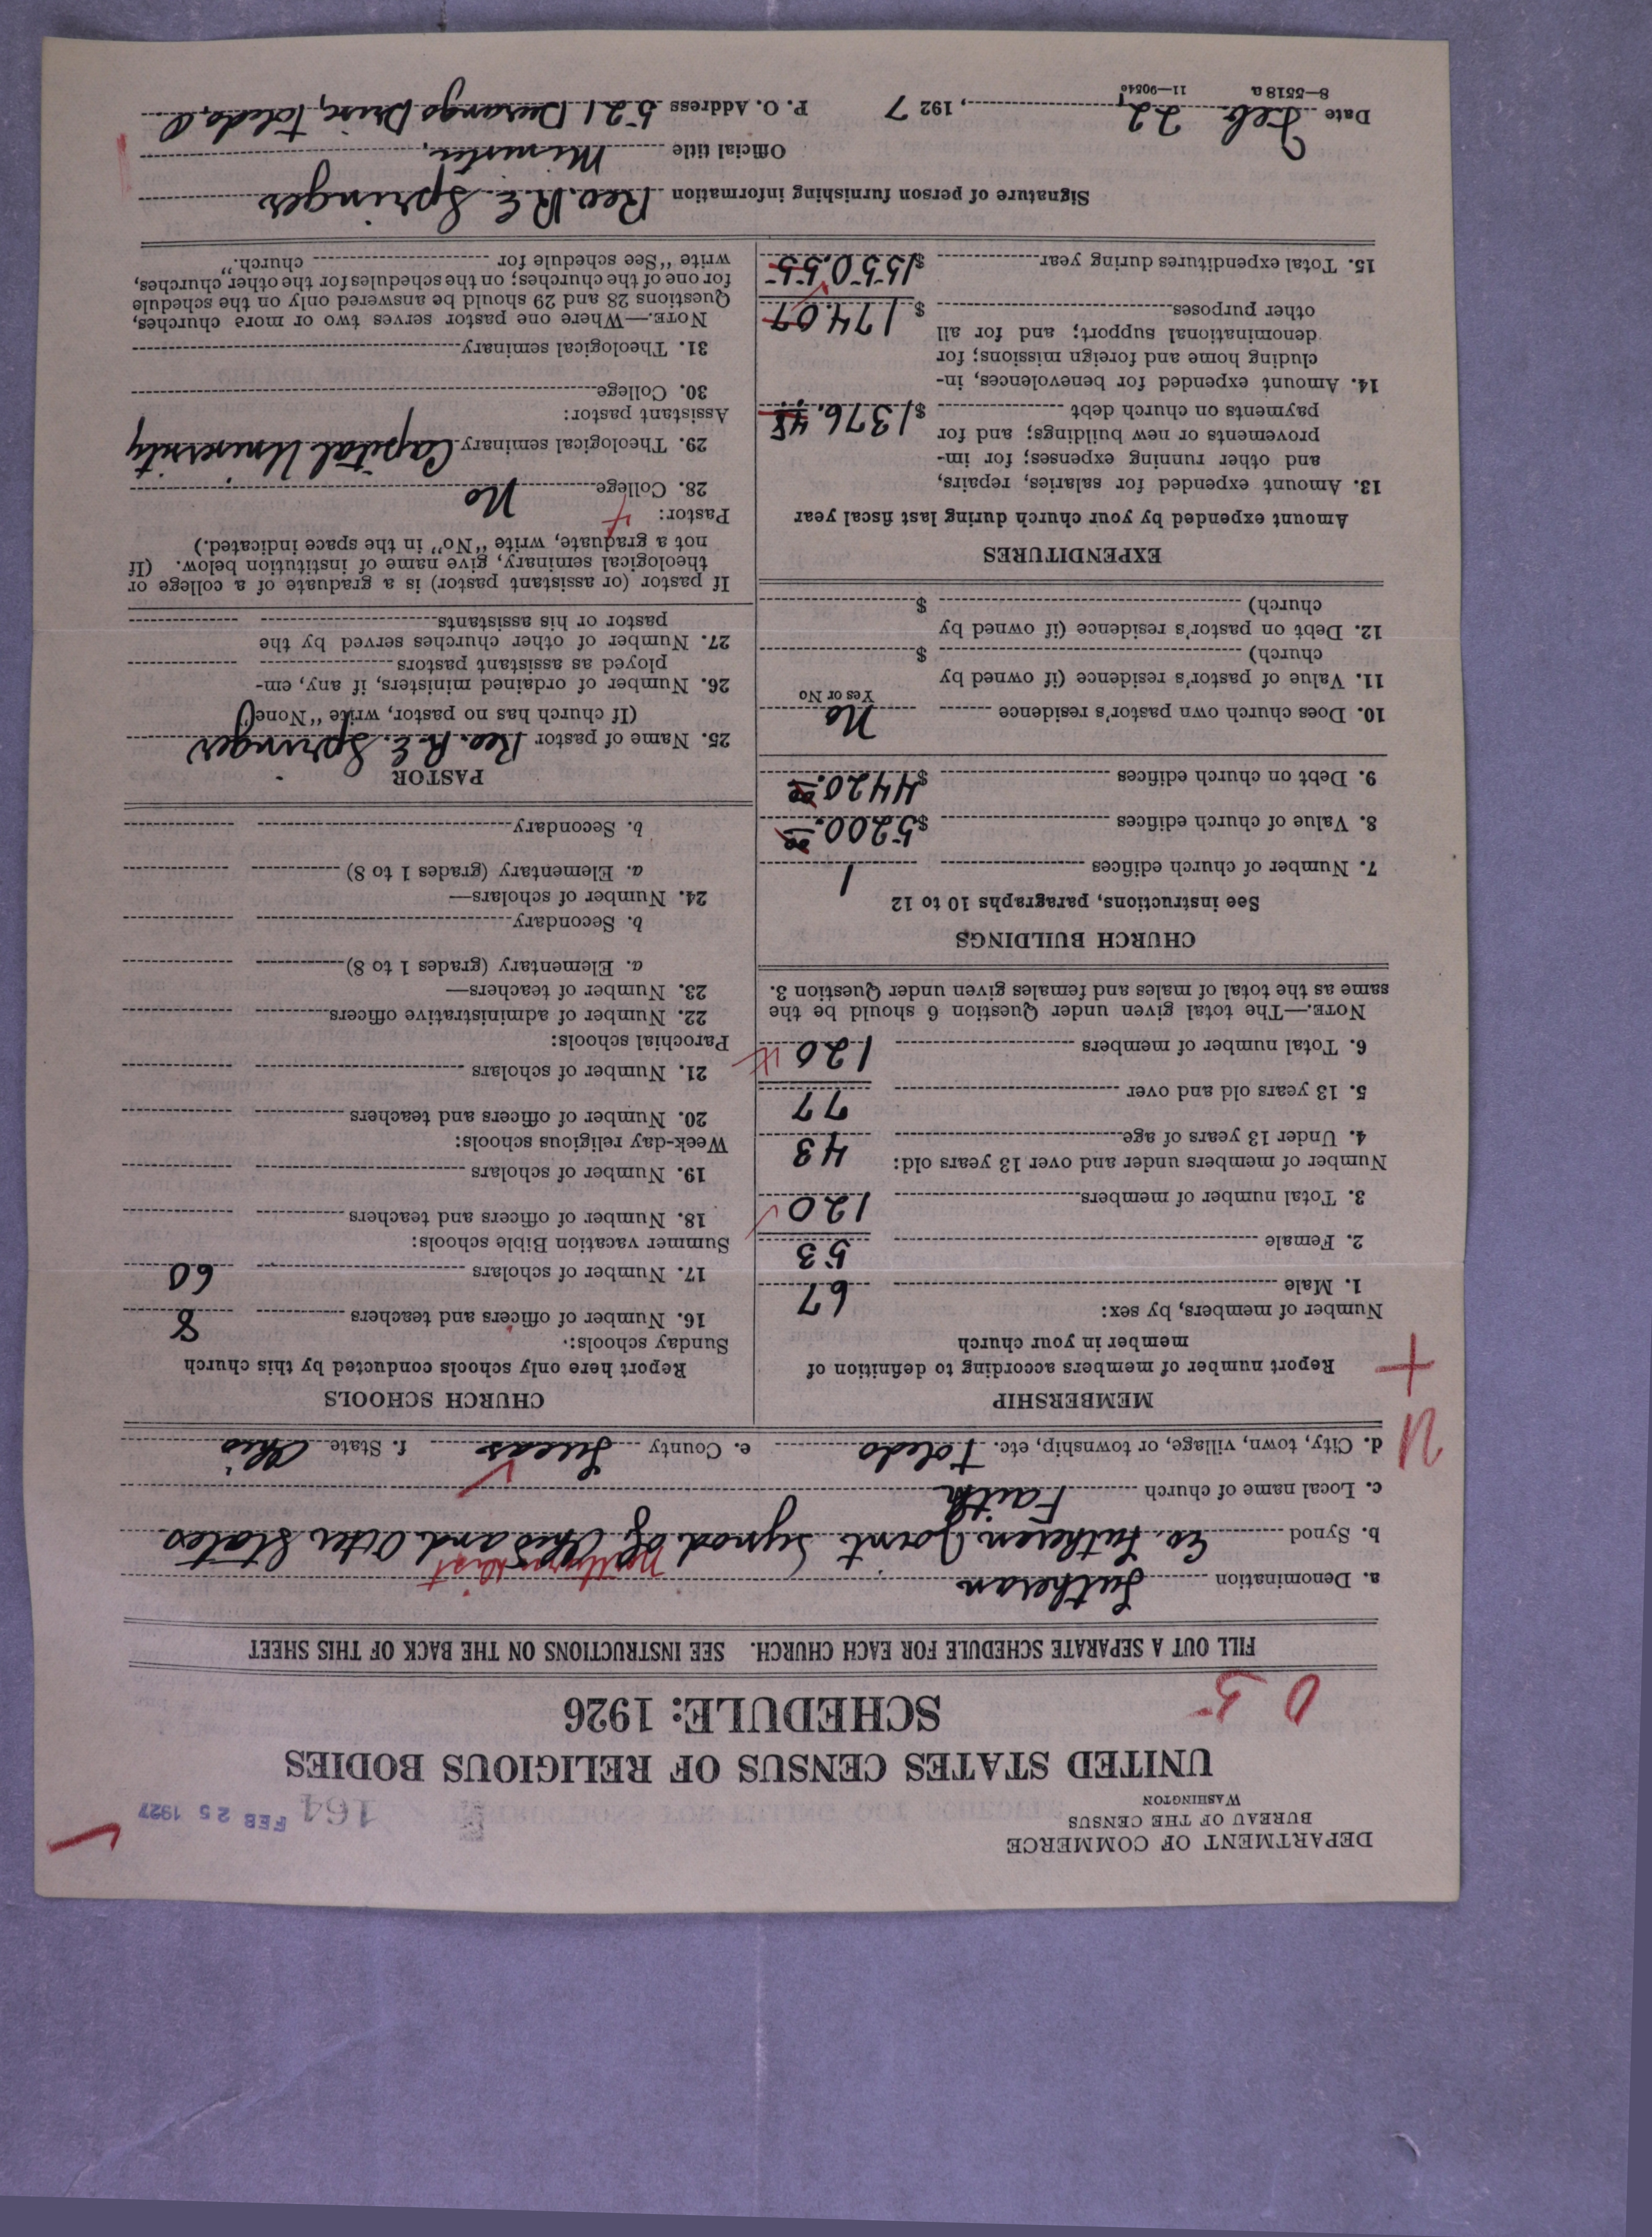 DEPARTMENT OF COMMERCE
BUREAU OF THE CENSUS
WASHINGTON
164 FEB 25 1927
UNITED STATES CENSUS OF RELIGIOUS BODIES
SCHEDULE: 1926
0 5
FILL OUT A SEPARATE SCHEDULE FOR EACH CHURCH. SEE INSTRUCTIONS ON THE BACK OF THIS SHEET
a. Denomination Lutheran
b. Synod Ev. Lutheran Joint Synod of Ohio and Other States
c. Local name of church Faith
d. City, town, village, or township, etc. Toledo e. County Lucas f. State Ohio
MEMBERSHIP
Report number of members according to definition of
member in your church
Number of members, by sex:
1. Male 67
2. Female 53
3. Total number of members 120
Number of members under and over 13 years old:
4. Under 13 years of age 43
5. 13 years old and over 77
6. Total number of members 120
NOTE.—The total given under Question 6 should be the
same as the total of males and females given under Question 3.
CHURCH BUILDINGS
See instructions, paragraphs 10 to 12
7. Number of church edifices 1
8. Value of church edifices $5200.00
9. Debt on church edifices $4420.00
10. Does church own pastor's residence No
Yes or No
11. Value of pastor's residence (if owned by
church) $
12. Debt on pastor's residence (if owned by
church) $
EXPENDITURES
Amount expended by your church during last fiscal year
13. Amount expended for salaries, repairs,
and other running expenses; for im-
provements or new buildings; and for
payments on church debt $1376.48
14. Amount expended for benevolences, in-
cluding home and foreign missions; for
denominational support; and for all
other purposes $174.07
15. Total expenditures during year $1550.55
CHURCH SCHOOLS
Report here only schools conducted by this church
Sunday schools:
16. Number of officers and teachers 8
17. Number of scholars 60
Summer vacation Bible schools:
18. Number of officers and teachers
19. Number of scholars
Week-day religious schools:
20. Number of officers and teachers
21. Number of scholars
Parochial schools:
22. Number of administrative officers
23. Number of teachers—
a. Elementary (grades 1 to 8)
b. Secondary
24. Number of scholars—
a. Elementary (grades 1 to 8)
b. Secondary
PASTOR
25. Name of pastor Rev. R. E. Springer
(If church has no pastor, write "None")
26. Number of ordained ministers, if any, em-
ployed as assistant pastors
27. Number of other churches served by the
pastor or his assistants
If pastor (or assistant pastor) is a graduate of a college or
theological seminary, give name of institution below. (If
not a graduate, write "No" in the space indicated.)
Pastor:
28. College No
29. Theological seminary Capital University
Assistant pastor:
30. College
31. Theological seminary
NOTE.—Where one pastor serves two or more churches,
Questions 28 and 29 should be answered only on the schedule
for one of the churches; on the schedules for the other churches,
write "See schedule for church."
Signature of person furnishing information Rev. R. E. Springer
Official title Minister,
Date Feb. 22, 1927 P. O. Address 521 Durango Drive, Toledo, O
8—5518 a 11—90540